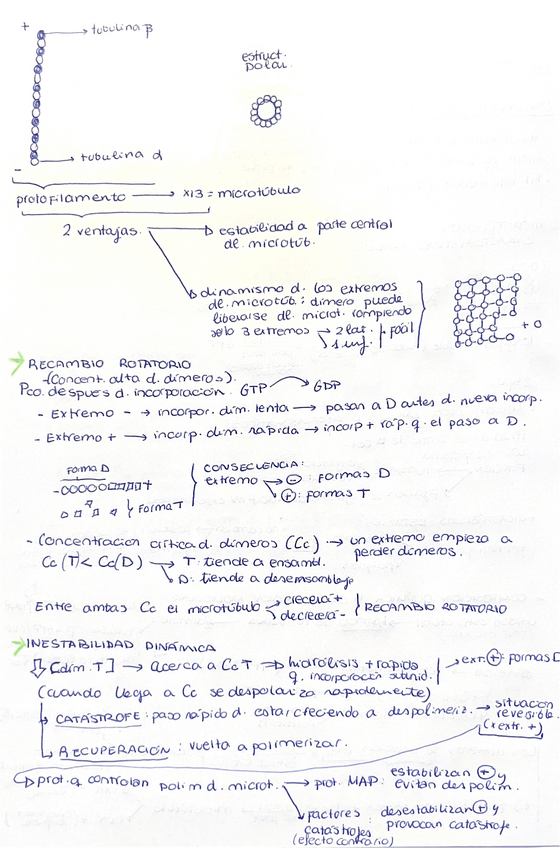 +
tubulina β
estruct.
polar.
tubulina α
-
protofilamento → x13 = microtúbulo
2 ventajas. → estabilidad a parte central
de microtúb.
dinamismo d. los extremos
de microtúb: dímero puede
liberarse de microt. rompiendo
solo 3 extremos → 2 lat. } fácil
1 inf.
+ o
RECAMBIO ROTATORIO
(Concent. alta d. dímeros).
Pco. despues d. incorporación. GTP → GDP
- Extremo - → incorpor. dim. lenta → pasan a D antes d. nueva incorp.
- Extremo + → incorp. dim. rápida → incorp + ráp. q. el paso a D.
Forma D
-
+
Forma T
CONSECUENCIA:
extremo → ⊖ : formas D
⊕ : formas T
- Concentracion crítica d. dímeros (Cc) → un extremo empieza a
perder dímeros.
Cc (T) < Cc (D) → T: tiende a ensambl.
D: tiende a desensamblaje
Entre ambas Cc el microtúbulo → crecerá +
decrecerá - } RECAMBIO ROTATORIO
INESTABILIDAD DINÁMICA
⇓ [dím. T] → acerca a Cc T ⇒ hidrólisis + rapida
q. incorporación subunid. → ext. ⊕: formas D
(cuando llega a Cc se despolariza rapidamente)
CATÁSTROFE: paso rápido d. estar creciendo a despolimeriz. → situación
reversible.
(x extr. +)
RECUPERACIÓN: vuelta a polimerizar.
prot. q controlan polim d. microt. → prot. MAP: estabilizan ⊕ y
evitan despolim.
factores catástrofes : desestabilizan ⊕ y
provocan catástrofe.
(efecto contrario)